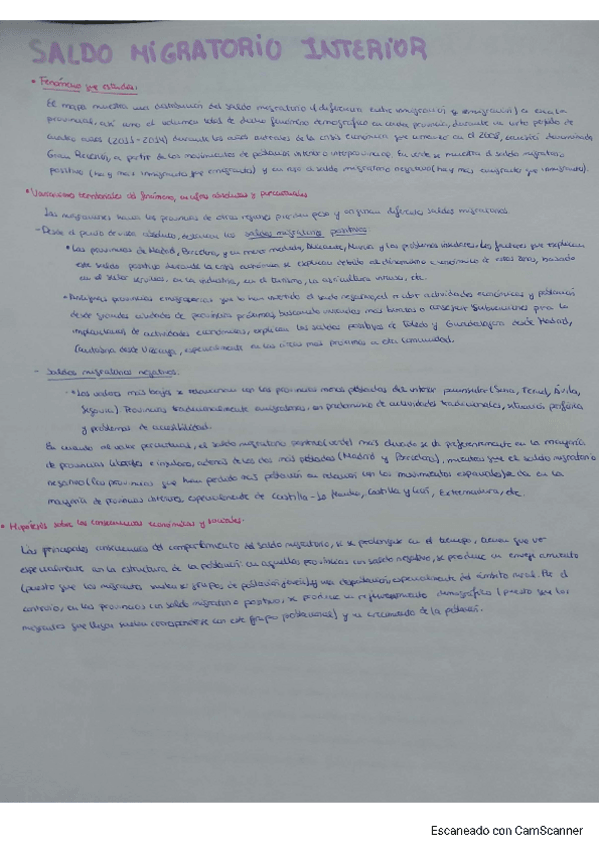 SALDO MIGRATORIO INTERIOR
• Fenómeno que estudia:
El mapa muestra una distribución del saldo migratorio (diferencia entre inmigración y emigración) a escala
provincial, así como el volumen total de dicho fenómeno demográfico en cada provincia, durante un corto período de
cuatro años (2011-2014) durante los años de la crisis económica que comenzó en el 2008, denominada
Gran Recesión, a partir de los movimientos de población interior o interprovincial. En verde se muestra el saldo migratorio
positivo (hay más inmigrantes que emigrantes) y en rojo el saldo migratorio negativo (hay más emigrantes que inmigrantes).
• Variaciones territoriales del fenómeno, en cifras absolutas y porcentuales
Las migraciones hacia las provincias de otras regiones pierden peso y originan diferentes saldos migratorios.
- Desde el punto de vista absoluto, destacan los saldos migratorios positivos
• Las provincias de Madrid, Barcelona, y en menor medida, Baleares, Murcia y las provincias insulares. Los factores que explican
este saldo positivo durante la crisis económica se explican debido al dinamismo económico de estas áreas, basado
en el sector servicios, en la industria, en el turismo, la agricultura intensiva, etc.
• Antiguas provincias emigratorias que han invertido el saldo negativo, al recibir actividades económicas y población
desde grandes ciudades de provincias próximas, buscando viviendas más baratas o conseguir subvenciones para la
implantación de actividades económicas, explican los saldos positivos de Toledo y Guadalajara desde Madrid,
Cantabria desde Vizcaya, especialmente en las áreas más próximas a esta comunidad.
- Saldos migratorios negativos:
• Los valores más bajos se relacionan con las provincias menos pobladas del interior peninsular (Soria, Teruel, Ávila,
Segovia) Provincias tradicionalmente emigratorias, con predominio de actividades tradicionales, situación periférica
y problemas de accesibilidad.
En cuanto al valor porcentual, el saldo migratorio positivo (verde) más elevado se da preferentemente en la mayoría
de provincias litorales e insulares, además de las dos más pobladas (Madrid y Barcelona), mientras que el saldo migratorio
negativo (las provincias que han perdido más población en relación con los movimientos españoles) se da en la
mayoría de provincias interiores, especialmente de Castilla-La Mancha, Castilla y León, Extremadura, etc.
• Hipótesis sobre las consecuencias económicas y sociales.
Las principales consecuencias del comportamiento del saldo migratorio, si se prolongase en el tiempo, tienen que ver
especialmente con la estructura de la población: en aquellas provincias con saldo negativo, se produce un envejecimiento
(puesto que los migrantes suelen ser grupos de población joven) y una despoblación, especialmente del ámbito rural. Por el
contrario, en las provincias con saldo migratorio positivo, se produce un rejuvenecimiento demográfico (puesto que los
migrantes que llegan suelen corresponderse con este grupo poblacional) y un crecimiento de la población.
Escaneado con CamScanner